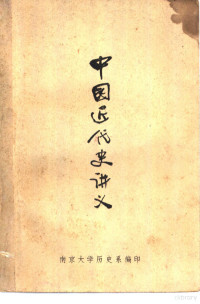 中国近代史讲义
南京大学历史系编印